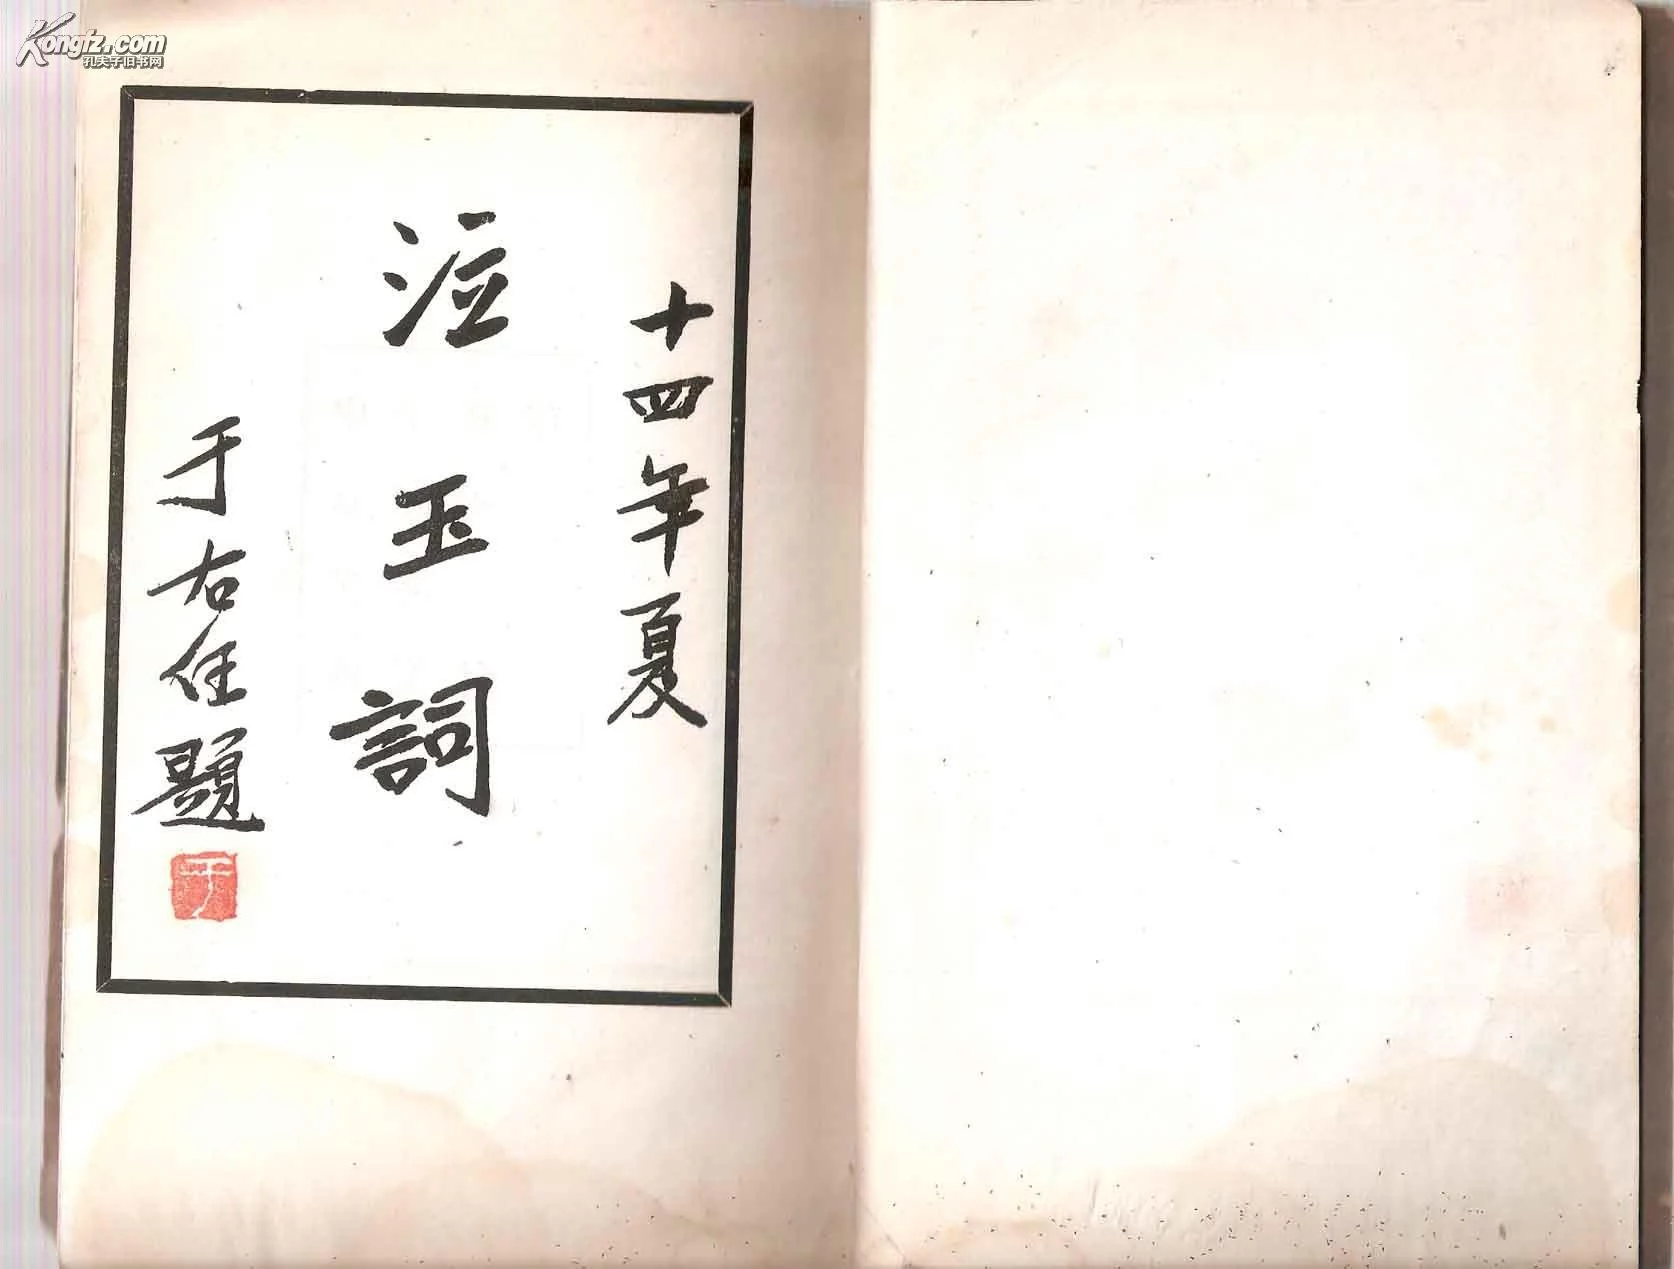 Kongfz.com
孔夫子旧书网
十四年夏
泣玉詞
于右任題
于